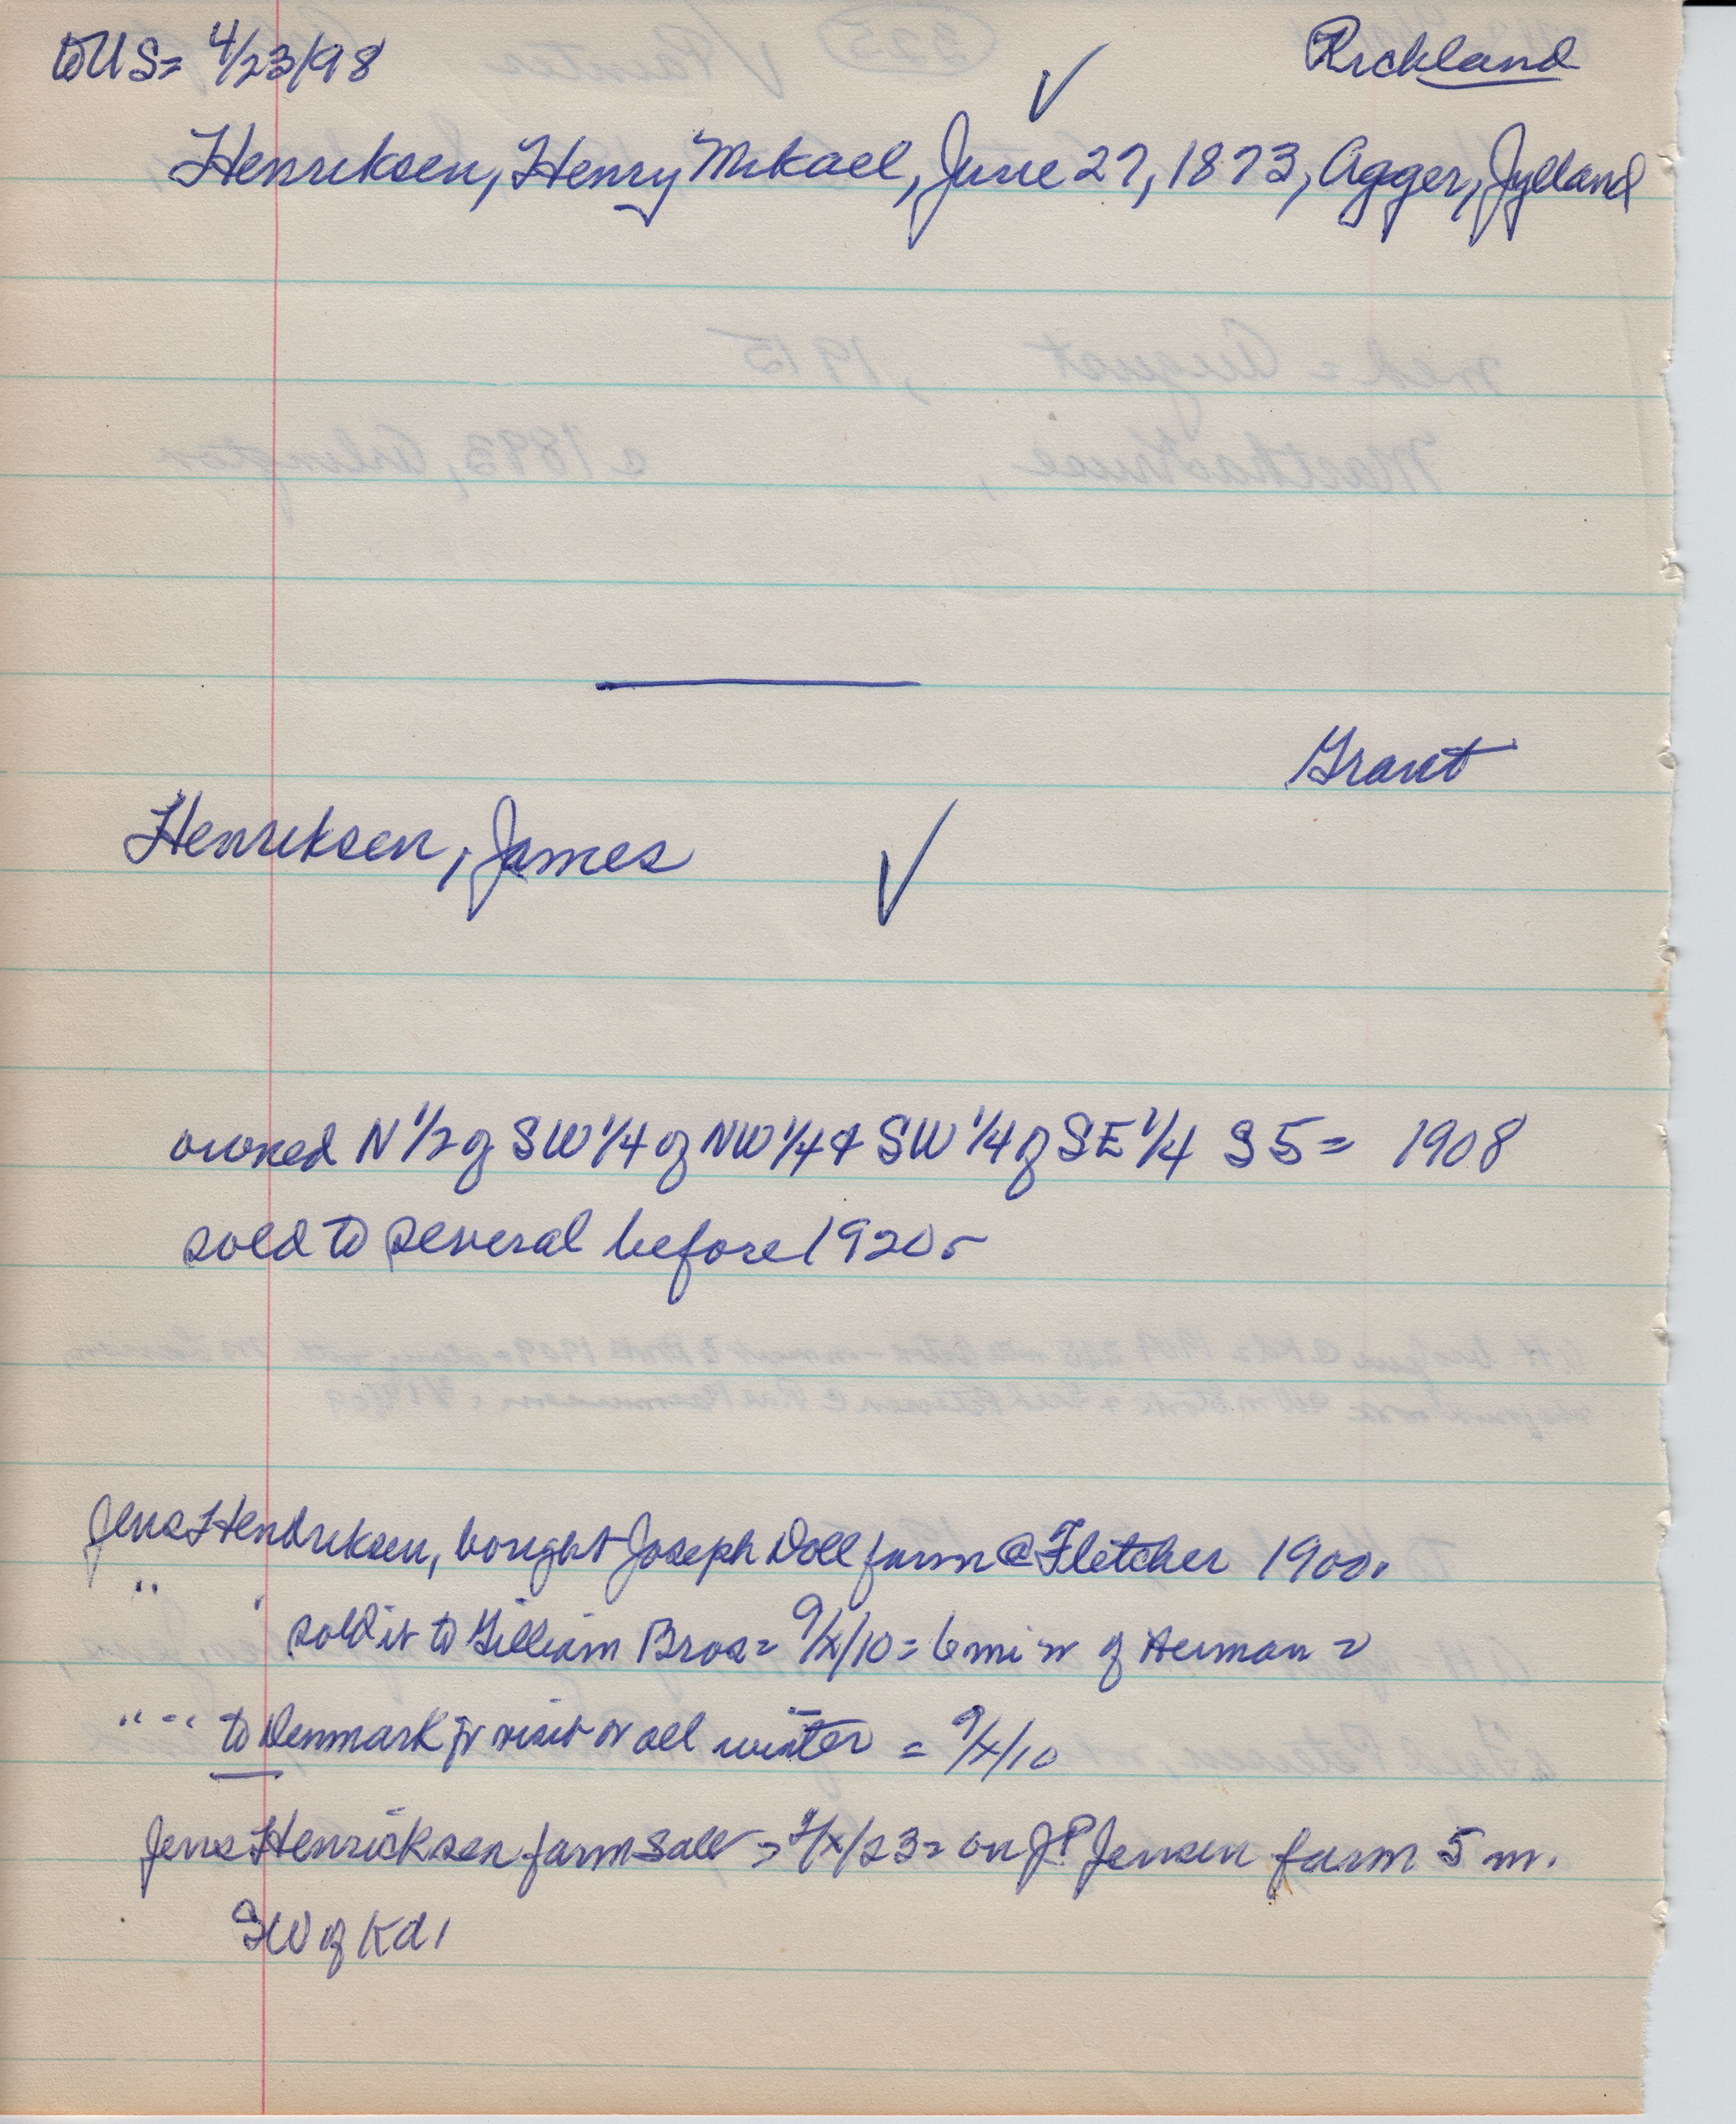 to US= 4/23/98 ✓ Richland
Henriksen, Henry Mikael, June 27, 1873, Agger, Jylland
Grant
Henriksen, James ✓
owned N 1/2 of SW 1/4 of NW 1/4 & SW 1/4 of SE 1/4 S5= 1908
sold to several before 1920s
Jens Hendriksen, bought Joseph Doll farm @ Fletcher 1900.
" " sold it to Gilliam Bros= 9/x/10= 6 mi W of Herman=
" " to Denmark for visit for all winter = 9/x/10
Jens Henricksen farm sale = 9/x/23= on JP Jensen farm 5 m.
SW of Kd,